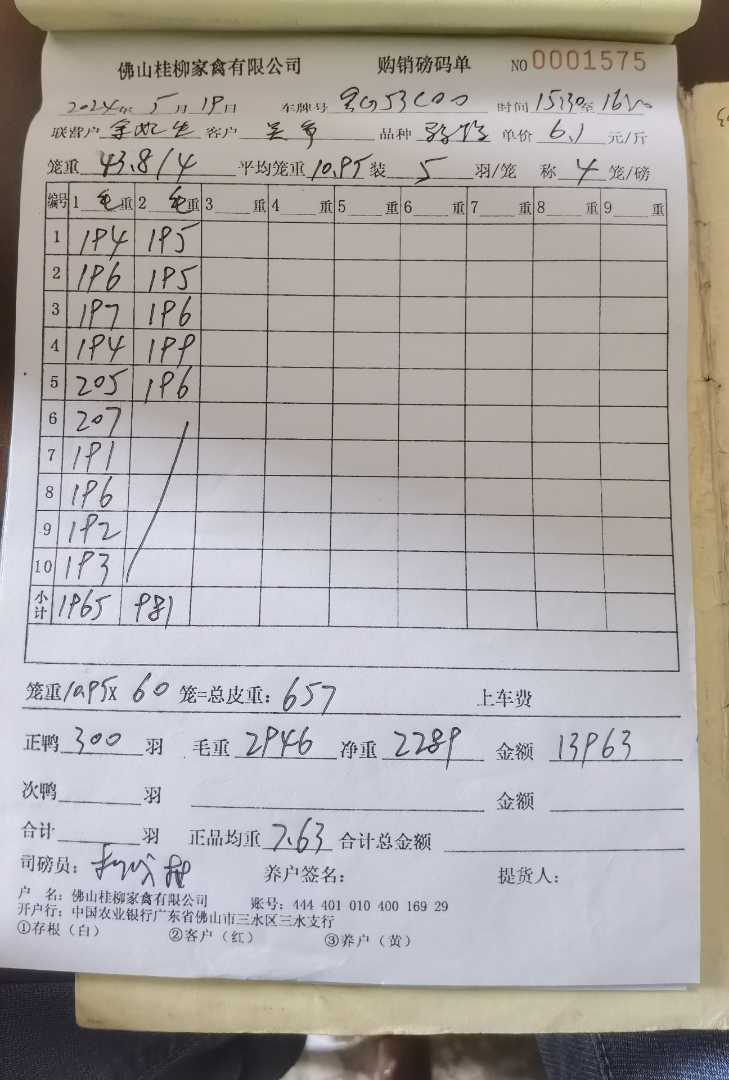 佛山桂柳家禽有限公司 购销磅码单 NO 0001575
2024年 5月19日 车牌号 时间 15:30至
联营户 客户 吴 品种 单价 6.1 元/斤
笼重 43.8/4 平均笼重 10.95 装 5 羽/笼 称 4 笼/磅
编号 1 毛重 2 毛重 3 重 4 重 5 重 6 重 7 重 8 重 9 重
1 194 195
2 196 195
3 197 196
4 194 199
5 205 196
6 207
7 191
8 196
9 192
10 193
小计 1965 981
笼重 10.95X 60 笼=总皮重: 657 上车费
正鸭 300 羽 毛重 2946 净重 2289 金额 13963
次鸭 羽 金额
合计 羽 正品均重 7.63 合计总金额
司磅员: 养户签名: 提货人:
户 名: 佛山桂柳家禽有限公司 账号: 444 401 010 400 169 29
开户行: 中国农业银行广东省佛山市三水区三水支行
①存根（白） ②客户（红） ③养户（黄）